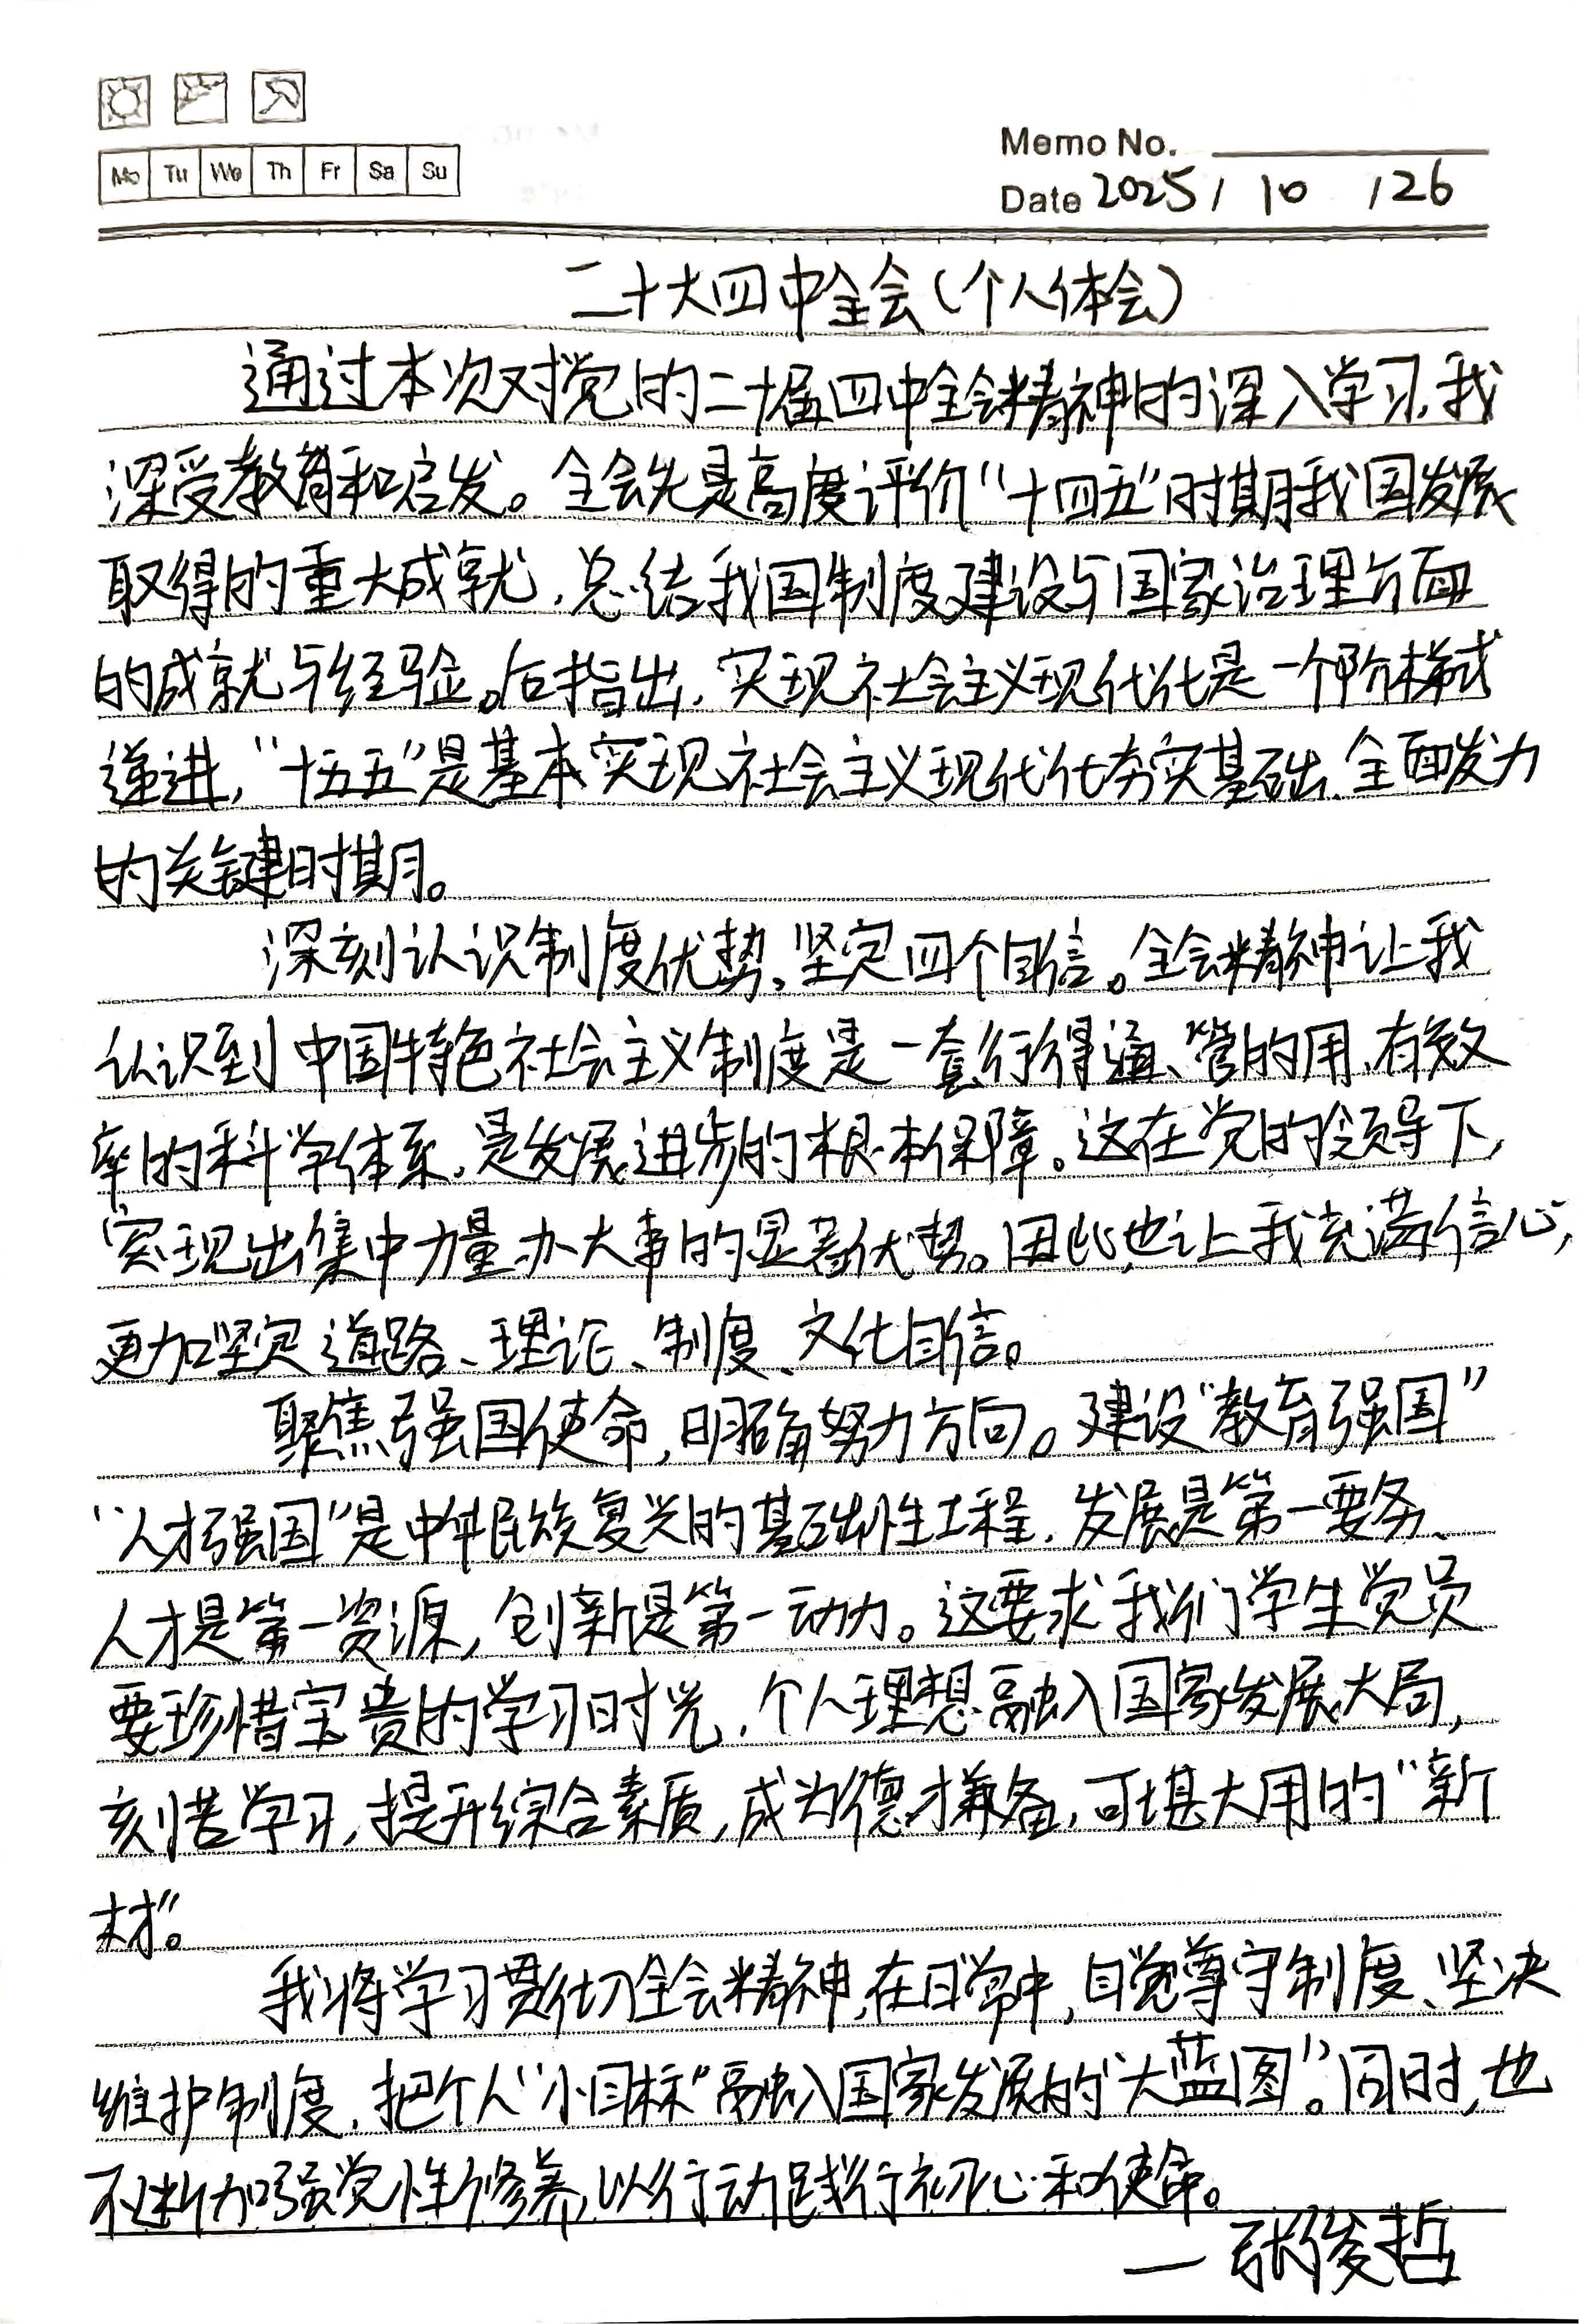 Mo Tu We Th Fr Sa Su
Memo No.
Date 2025 / 10 / 26
二十大四中全会(个人体会)
通过本次对党的二十届四中全会精神的深入学习,我
深受教育和启发。全会先是高度评价“十四五”时期我国发展
取得的重大成就,总结我国制度建设与国家治理方面
的成就与经验。后指出,实现社会主义现代化是一个阶梯式
递进,“十五五”是基本实现社会主义现代化夯实基础、全面发力
的关键时期。
深刻认识制度优势,坚定四个自信。全会精神让我
认识到中国特色社会主义制度是一套行得通、管的用、有效
率的科学体系,是发展进步的根本保障。这在党的领导下,
实现出集中力量办大事的显著优势。因此,也让我充满信心,
更加坚定道路、理论、制度、文化自信。
聚焦强国使命,明确努力方向。建设“教育强国”
“人才强国”是中华民族复兴的基础性工程,发展是第一要务、
人才是第一资源,创新是第一动力。这要求我们学生党员
要珍惜宝贵的学习时光,个人理想融入国家发展大局,
刻苦学习,提升综合素质,成为德才兼备,可堪大用的“新
材”。
我将学习贯彻全会精神,在日常中,自觉尊守制度、坚决
维护制度,把个人“小目标”融入国家发展的“大蓝图”。同时,也
不断加强党性修养,以行动践行初心和使命。
— 张俊哲